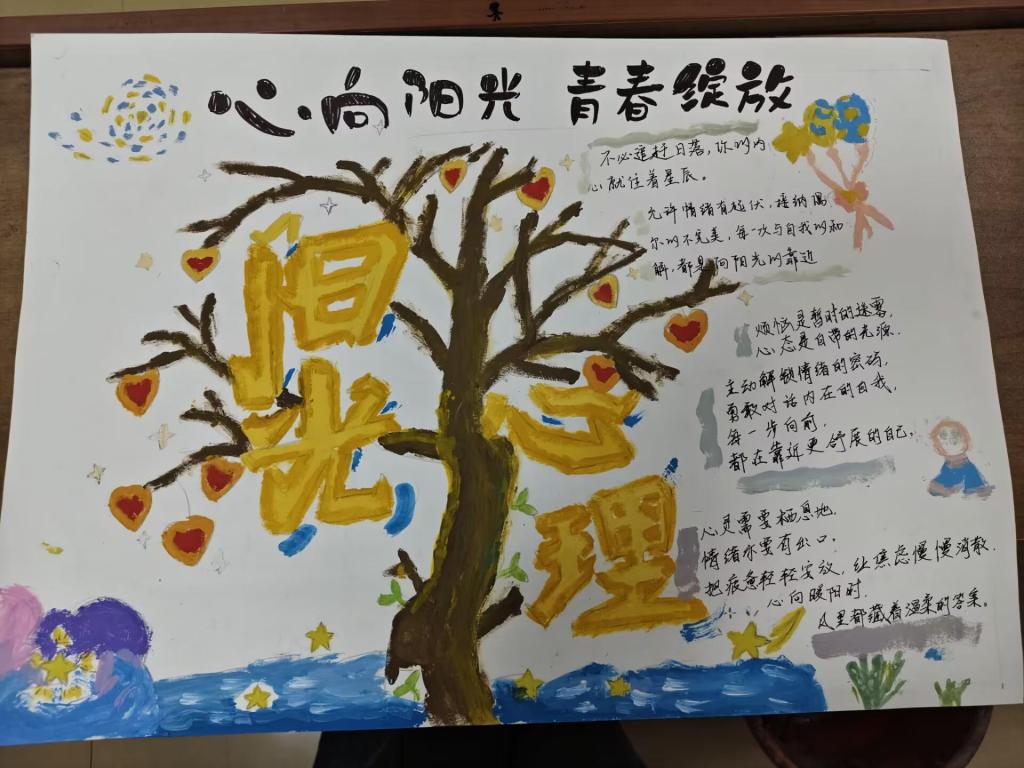 心向阳光 青春绽放
阳光
心理
不必追赶日落,你的内
心就住着星辰。
允许情绪有起伏,接纳偶
尔的不完美,每一次与自我的和
解,都是向阳光的靠近
烦恼是暂时的迷雾,
心态是自带的光源.
主动解锁情绪的密码,
勇敢对话内在的自我,
每一步向前,
都在靠近更舒展的自己,
心灵需要栖息地,
情绪亦要有出口.
把疲惫轻轻安放,让焦虑慢慢消散.
心向暖阳时,
处里都藏着温柔的答案。